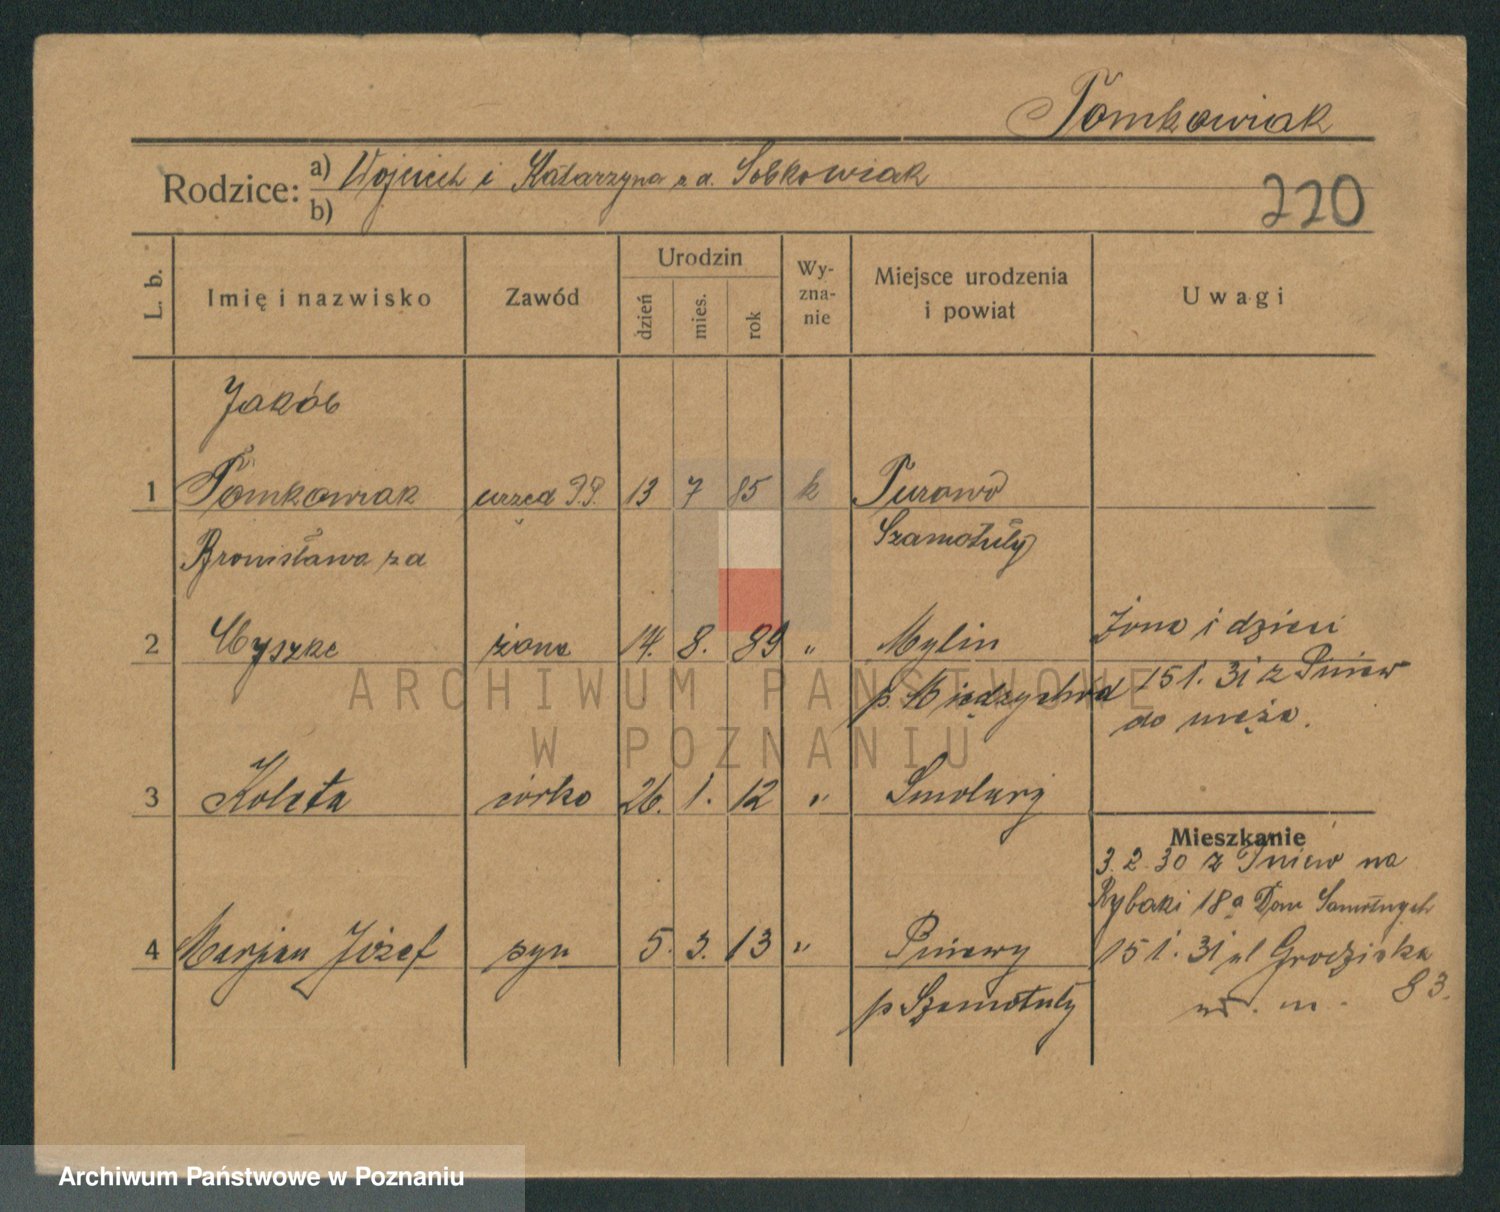 Tomkowiak
Rodzice: a) Wojciech i Katarzyna z d. Sobkowiak
b)
220
L. b. Imię i nazwisko Zawód Urodzin dzień mies. rok Wy-zna-nie Miejsce urodzenia i powiat Uwagi
Jakób
1 Tomkowiak urzęd P.P. 13 7 85 k Turowo
Bronisława z d Szamotuły
2 Myszke żona 14. 8. 89 " Mylin Żona i dzieci
p. Międzychod 15 1. 31 z Pniew
do męża.
3 Koleta córka 26. 1. 12 " Smolary
Mieszkanie
3. 2. 30 z Pniew na
Rybaki 18a Dom Samotnych
4 Marjan Józef syn 5. 3. 13 " Pniewy 15 1. 31 ul Grodziska
p Szamotuły 83.
m.
ARCHIWUM PAŃSTWOWE
W POZNANIU
Archiwum Państwowe w Poznaniu